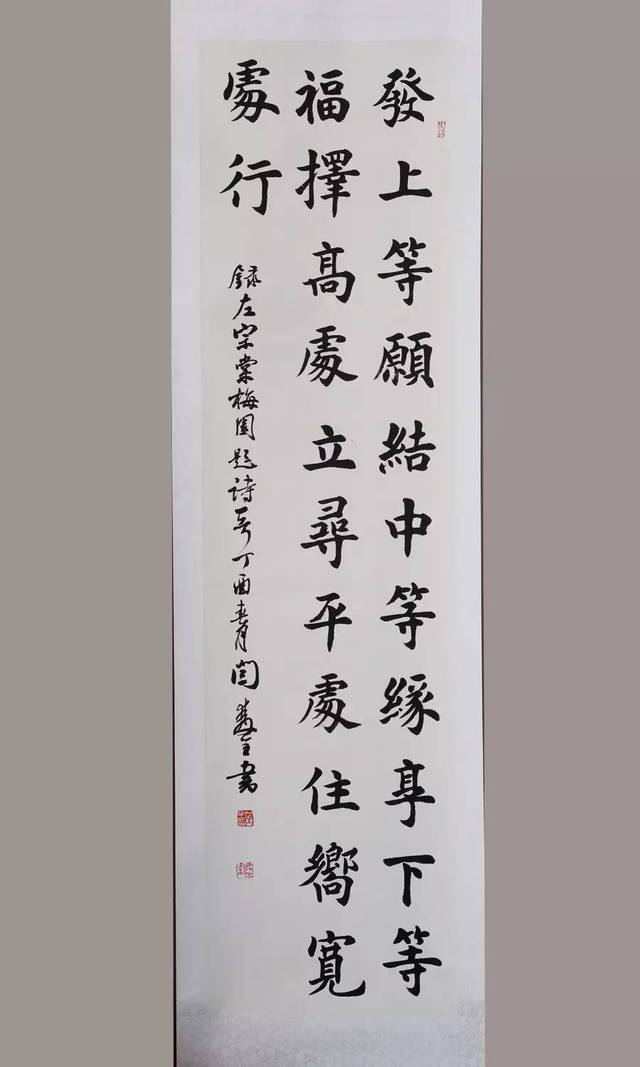 發上等願結中等緣享下等
福擇高處立尋平處住嚮寬
處行
錄左宗棠梅園題詩句丁酉春月閆書